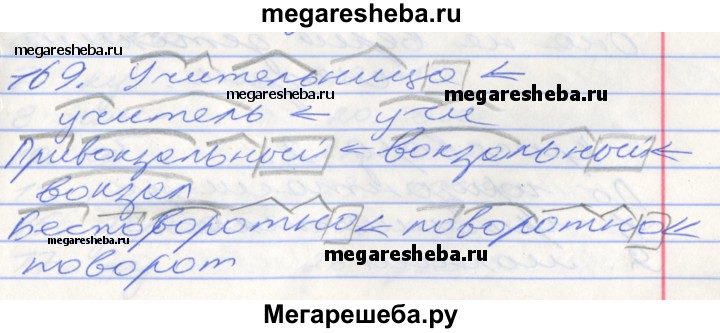 megaresheba.ru
megaresheba.ru
megaresheba.ru megaresheba.ru
169. Учительница ←
учитель ← учи
Привокзальный ← вокзальный ←
вокзал
Бесповоротно ← поворотно ←
megaresheba.ru megaresheba.ru
поворот
megaresheba.ru
Мегарешеба.ру